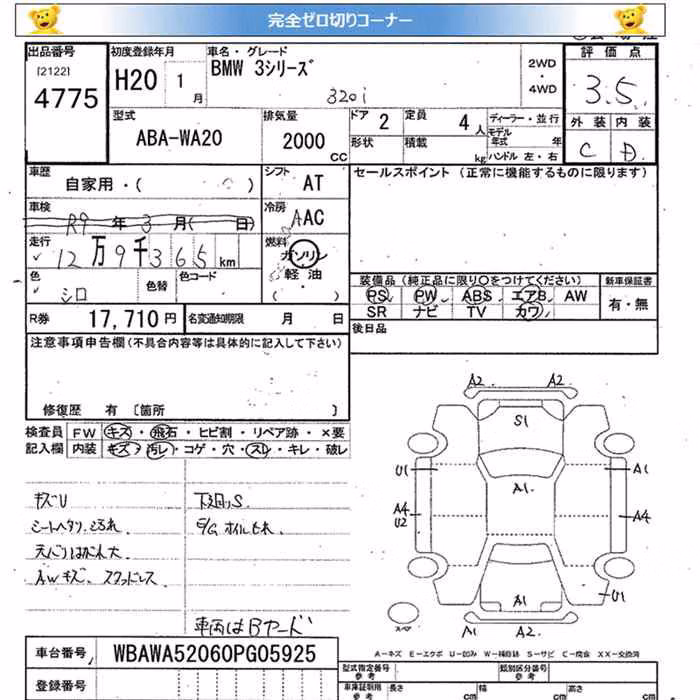 完全ゼロ切りコーナー
出品番号
[2122]
4775
初度登録年月
H20 1
月
車名・グレード
BMW 3シリーズ
320i
2WD
・
4WD
評価点
3.5
型式
ABA-WA20
排気量
2000
CC
ドア 2
定員 4 人
形状
積載
kg
ディーラー・並行
モデル
年式 年
ハンドル 左・右
外装 内装
C D
車歴
自家用・( )
シフト
AT
セールスポイント (正常に機能するものに限ります)
車検
R9 年 3 月( 日)
冷房
AAC
走行
12 万 9 千 365 km
燃料
ガソリン
軽油
( )
色
シロ
色替
色コード
装備品 (純正品に限り○をつけてください)
新車保証書
PS PW ABS エアB AW
SR ナビ TV カワ
有・無
R券 17,710 円
名変通知期限 月 日
後日品
注意事項申告欄 (不具合内容等は具体的に記入して下さい)
修復歴 有 〔箇所 〕
検査員
記入欄
FW キズ・飛石・ヒビ割・リペア跡・×要
内装 キズ・汚レ・コゲ・穴・スレ・キレ・破レ
キズU
シートヘタリ、よごれ
天バリはがれ大
AWキズ、スタッドレス
下廻りS
E/G オイルもれ
車両はBヤード
A2 A2
S1
U1
A1
A1
A4
U2
A4
A1
U1
A2 A2
スペア
A=キズ E=エクボ U=凹み W=補修跡 S=サビ C=腐食 XX=交換済
車台番号 WBAWA52060PG05925
登録番号
型式指定番号
参考
類別区分番号
参考
車庫証明用
参考
長さ cm
幅 cm
高さ cm